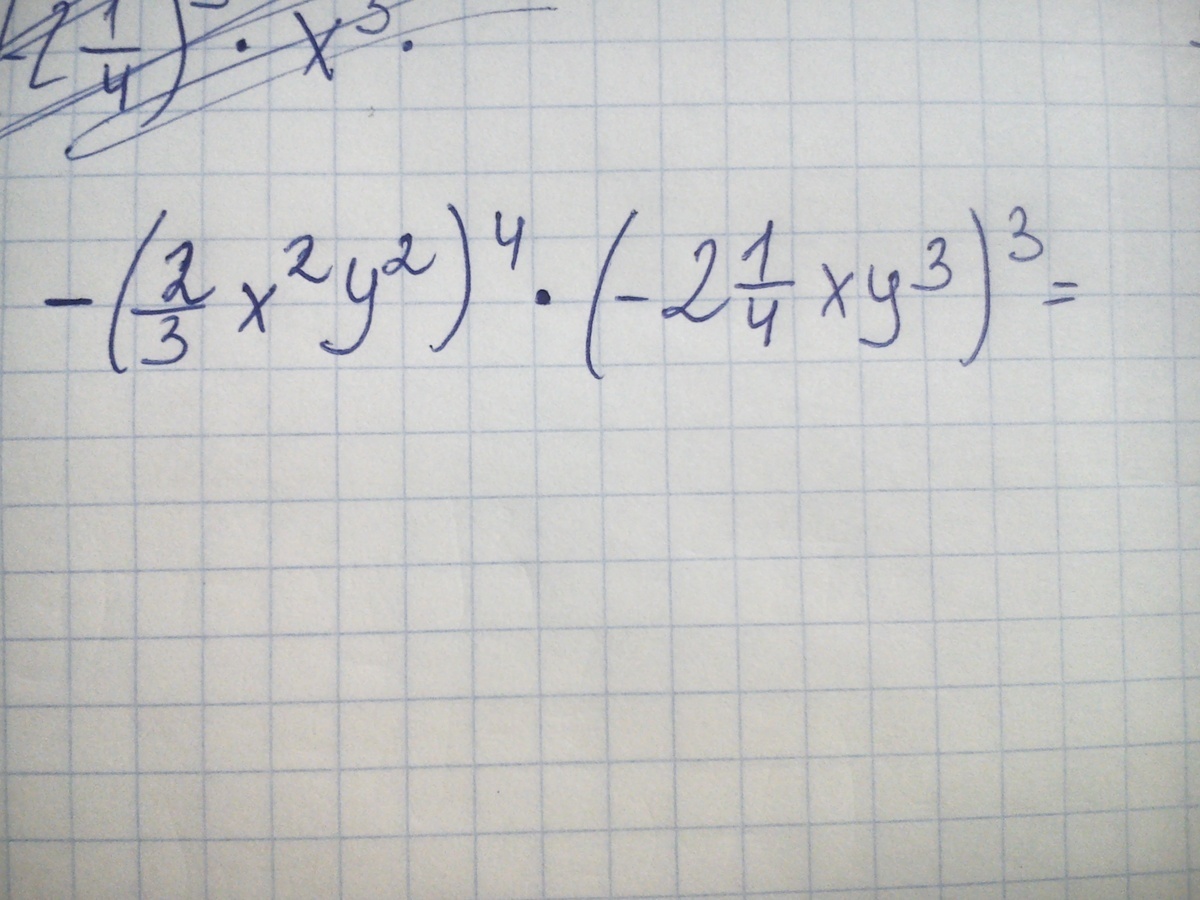 (2 1/4)³ · x³ ·
-(2/3 x²y²)⁴ · (-2 1/4 xy³)³ =